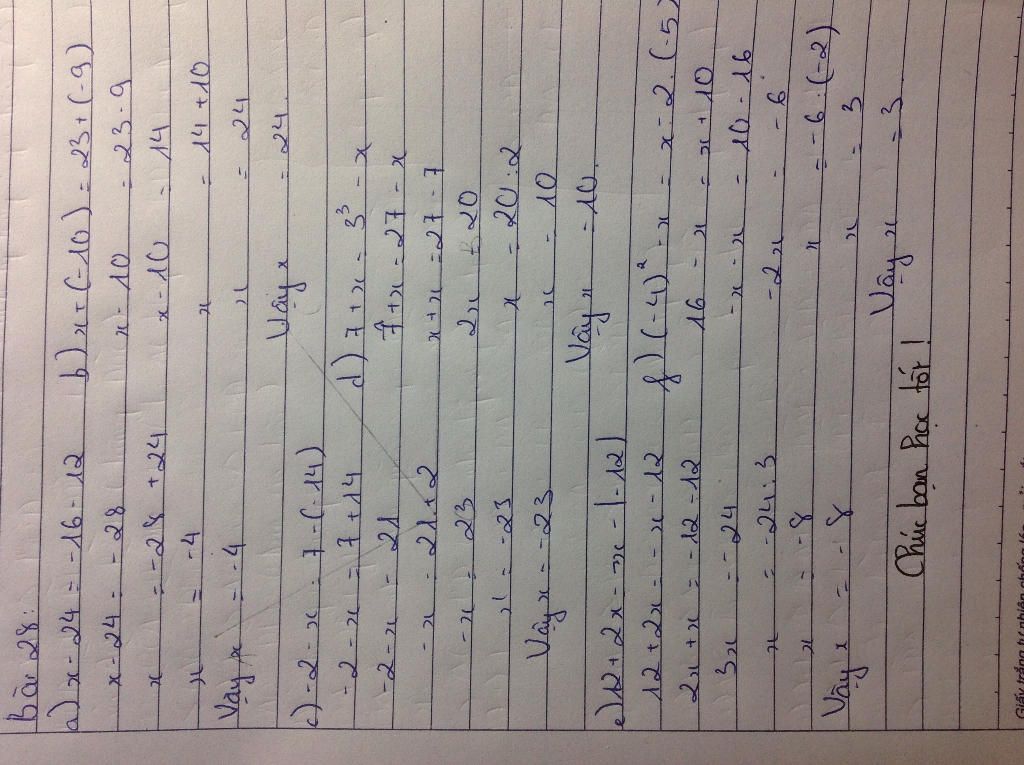 Bài 28:
a) x - 24 = -16 - 12
x - 24 = -28
x = -28 + 24
x = -4
Vậy x = -4
b) x + (-10) = 23 + (-9)
x - 10 = 23 - 9
x - 10 = 14
x = 14 + 10
x = 24
Vậy x = 24.
c) -2 - x = 7 - (-14)
-2 - x = 7 + 14
-2 - x = 21
-x = 21 + 2
-x = 23
x = -23
Vậy x = -23
d) 7 + x = 3³ - x
7 + x = 27 - x
x + x = 27 - 7
2x = 20
x = 20 : 2
x = 10
Vậy x = 10.
e) 12 + 2x = -x - |-12|
12 + 2x = -x - 12
2x + x = -12 - 12
3x = -24
x = -24 : 3
x = -8
Vậy x = -8
f) (-4)² - x = x - 2.(-5)
16 - x = x + 10
-x - x = 10 - 16
-2x = -6
x = -6 : (-2)
x = 3
Vậy x = 3
Chúc bạn học tốt !